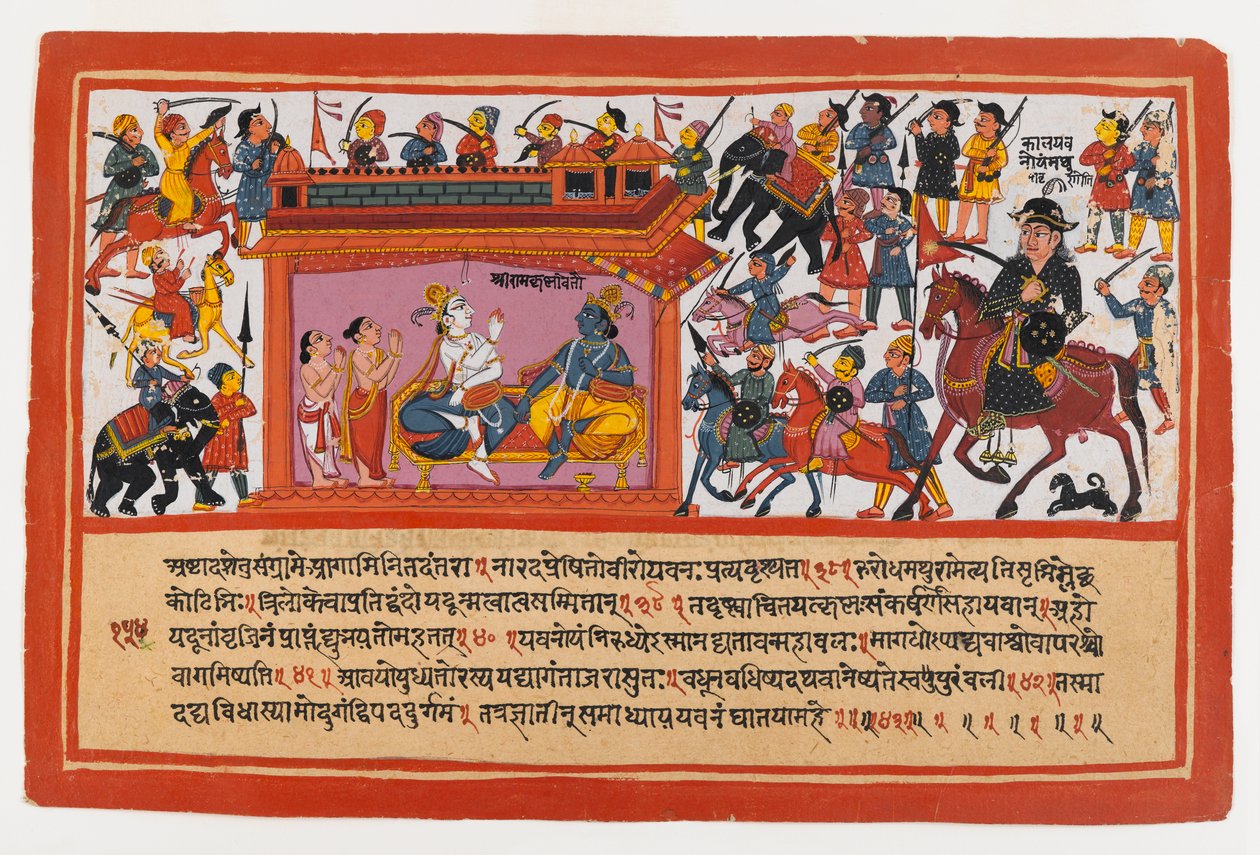 कालयव
नोयंमथु
श्रीरामकृष्णचिंतौ
अष्टादशेतुसंग्रामेआगामिनितदंतरा॥नारदप्रेषितोवीरोयवनःप्रत्यदृश्यत॥३८॥रुरोधमथुरामेत्यतिसृभिर्म्लेछ
कोटिभिः॥त्रिलोकेचाप्रतिद्वंदोयदून्मत्वात्मसम्मितान्॥३९॥तदृष्ट्वाचिंतयत्कृष्णःसंकर्षणसहायवान्॥अहो
१५४
यदूनांवृजिनंप्राप्तंह्युभयतोमहत्तत्॥४०॥यवनोयंनिरुध्येऽस्मानद्यतावन्महाबलः॥मागधोऽप्यद्यवाश्वोवापरश्वो
वागमिष्यति॥४१॥आवयोयुध्यतोरस्ययद्यागंताजरासुतः॥बंधून्वधिष्यत्यथवानेष्यतेस्वपुरंबली॥४२॥तस्मा
दद्यविधास्यामोदुर्गंद्विपददुर्गमं॥तत्रज्ञातीन्समाधाययवनंघातयामहे॥॥॥४३॥॥ ॥ ॥ ॥ ॥ ॥ ॥ ॥